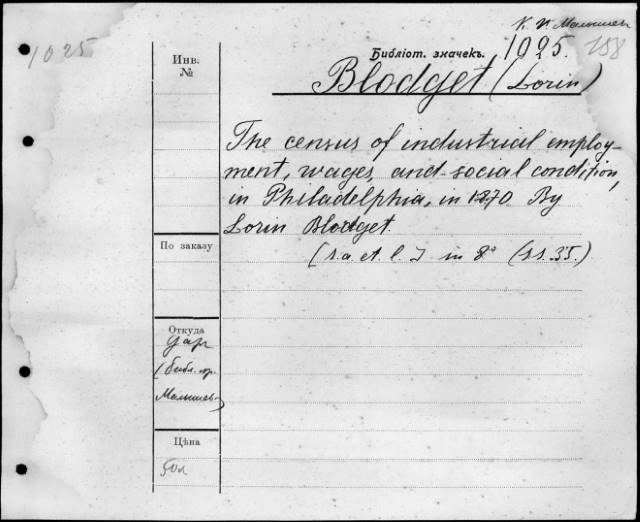 К. И. Малышев
1025
Библіот. значекъ. 1025. 158
Инв.
№
Blodget (Lorin)
The census of industrial employ-
ment, wages, and social condition,
in Philadelphia, in 1870 By
Lorin Blodget.
[s. a. et. l.] in 8° (ss. 35.)
По заказу
Откуда
Дар
(библ. пр.
Малышев)
Цѣна
50к